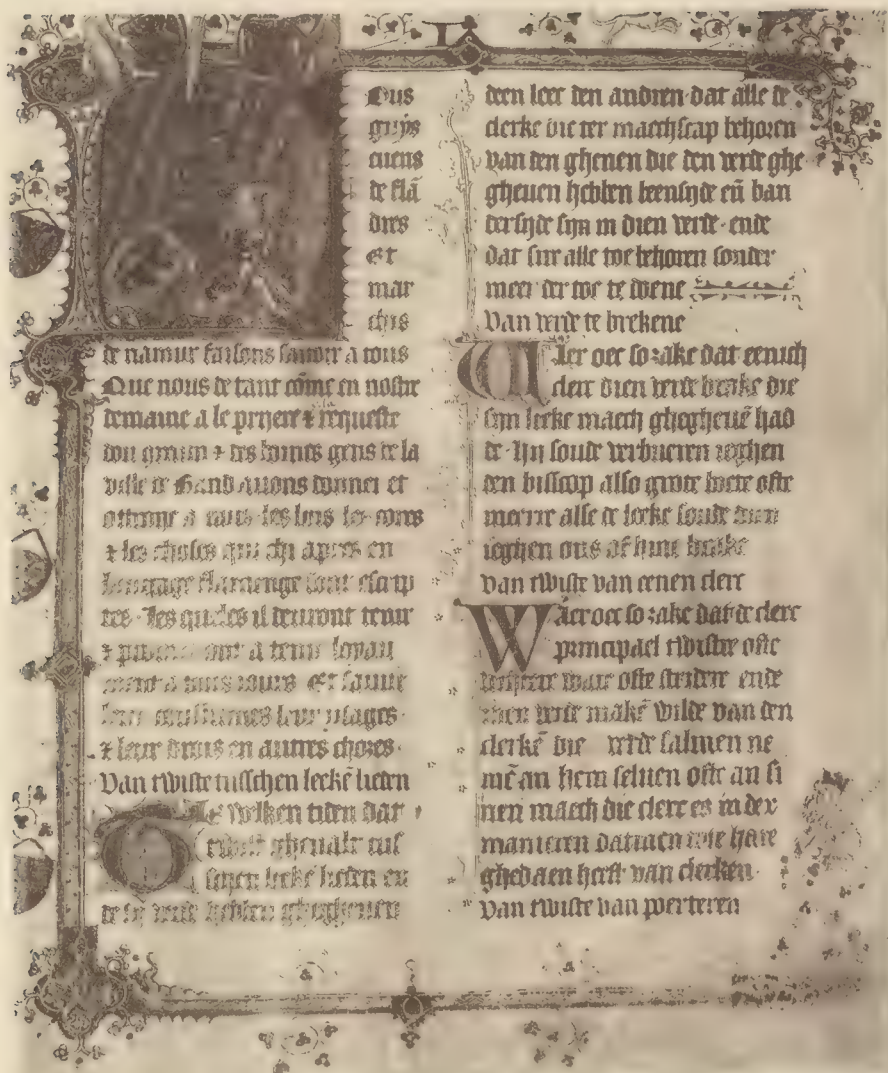 Ous
guys
cuens
de flã
dres
et
mar
chis
de namur faisons sauoir a tous
Que nous de tant cõme en nostre
demaine a le pryere & requeste
dou & des boines gens de la
ville de Gand auons donnei et
a tous les les
& les choses qui chi apres en
langage flamenge sont escrip
tes. Les queles il deuront tenir
& a tenir loyau
ment a tous iours Et sauue
leur coustumes leur vsages
& leur drois en autres choses
Van twiste tusschen leekẽ lieden
welken tiden dat
twist gheualt tus
schen leeke lieden en
de hebben ghegheuen
deen leec den andren dat alle de
clerke die ter maechscap behoren
van den ghenen die den verde ghe
gheuen hebben beensyde eñ dan
dersyde syn in dien verde. ende
dat sire alle toe behoren sonder
meer der toe te doene
Van verde te brekene
Waer oec so zake dat eenich
clerc dien verde brake die
syn leeke maech ghegheuẽ had
de. Hij soude verbueren ieghen
den bisscop also grote boete ofte
meerre alse de leeke soude doen
ieghen ons of hine brake
Van twiste van eenen clerc
Waer oec so zake dat de clerc
principael twistre ofte
ware ofte stridere ende
men verde makẽ wilde van den
clerkẽ die verde salmen ne
mẽ an hem seluen ofte an si
nen maech die clerc es in dex
manieren datmen hare
ghedaen heeft van clerken
Van twiste van poerteren